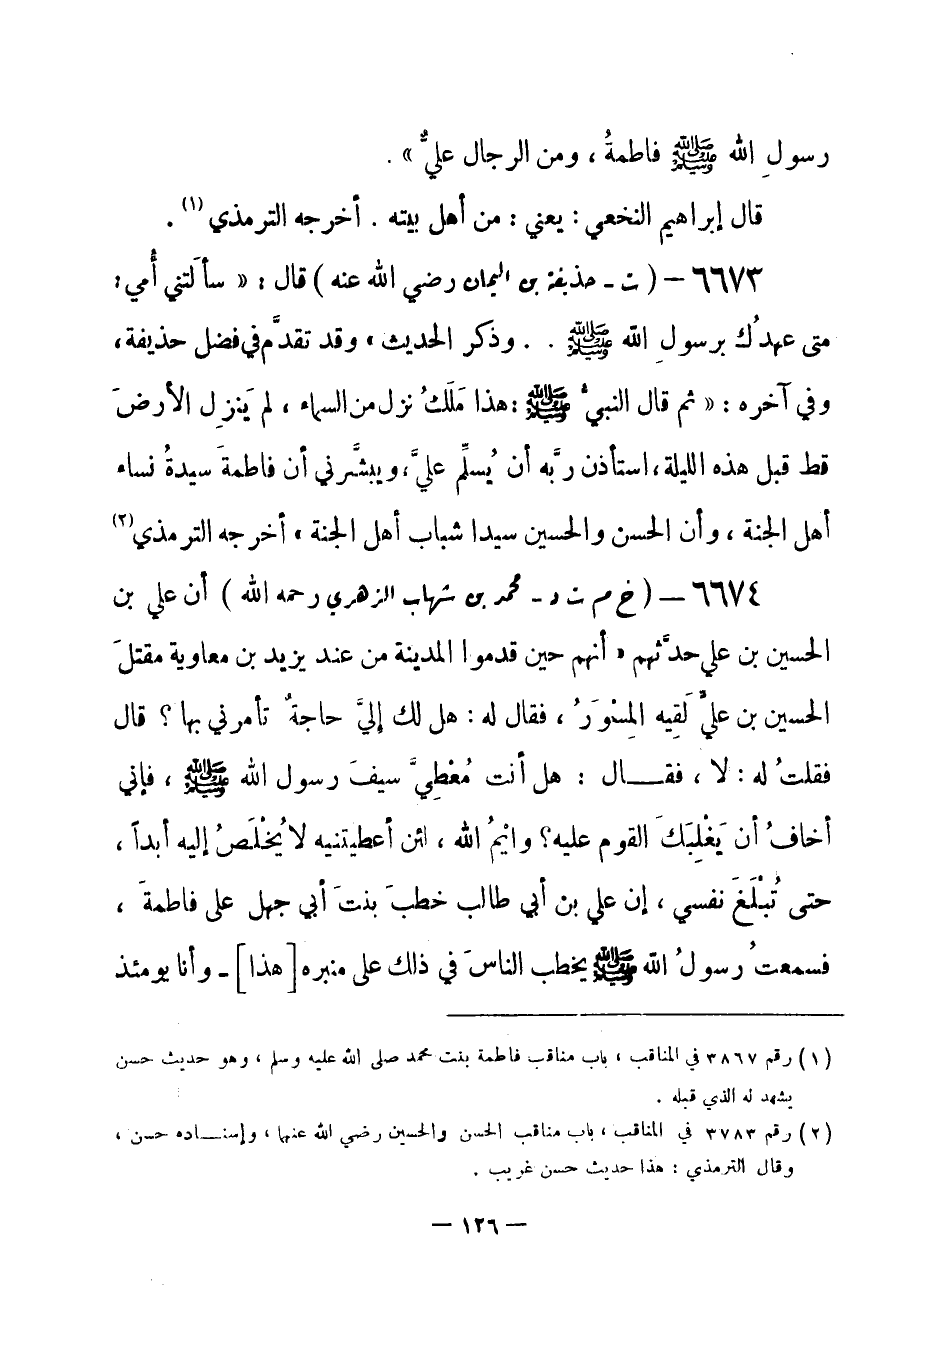 رسولِ الله ﷺ فاطمةُ ، ومن الرجال عليٌّ » .
قال إبراهيم النخعي : يعني : من أهل بيته . أخرجه الترمذي (١) .
٦٦٧٣ – ( ت – حذيفة بن اليمان رضي الله عنه ) قال : « سألتني أُمي :
متى عهدُك برسولِ الله ﷺ . . وذكر الحديث ، وقد تقدَّم في فضل حذيفة ،
وفي آخره : « ثم قال النبيُّ ﷺ : هذا مَلَكُ نزل من السماء ، لم يَنزِل الأرضَ
قط قبل هذه الليلة ، استأذن ربَّه أن يُسلِّم عليَّ ، ويبشَّرني أن فاطمةَ سيدةُ نساء
أهل الجنة ، وأن الحسن والحسين سيدا شباب أهل الجنة » أخرجه الترمذي (٢)
٦٦٧٤ – ( خ م ت د – محمد بن شهاب الزهري رحمه الله ) أن علي بن
الحسين بن علي حدَّثهم « أنهم حين قدموا المدينة من عند يزيد بن معاوية مقتلَ
الحسين بن عليٍّ لَقِيه المِسْوَرُ ، فقال له : هل لك إليَّ حاجةٌ تأمرني بها ؟ قال
فقلتُ له : لا ، فقـــال : هل أنت مُعْطِيَّ سيفَ رسول الله ﷺ ، فإني
أخافُ أن يَغْلِبَكَ القوم عليه؟ وايْمُ الله ، لئن أعطيتنيه لا يُخْلَصُ إليه أبداً ،
حتى تُبْلَغَ نفسي ، إن علي بن أبي طالب خطبَ بنتَ أبي جهل على فاطمةَ ،
فسمعتُ رسولَُ الله ﷺ يخطب الناسَ في ذلك على منبره [ هذا ] – وأنا يومئذ
(١) رقم ٣٨٦٧ في المناقب ، باب مناقب فاطمة بنت محمد صلى الله عليه وسلم ، وهو حديث حسن
يشهد له الذي قبله .
(٢) رقم ٣٧٨٣ في المناقب ، باب مناقب الحسن والحسين رضي الله عنهما ، وإسنـــاده حسن ،
وقال الترمذي : هذا حديث حسن غريب .
– ١٢٦ –